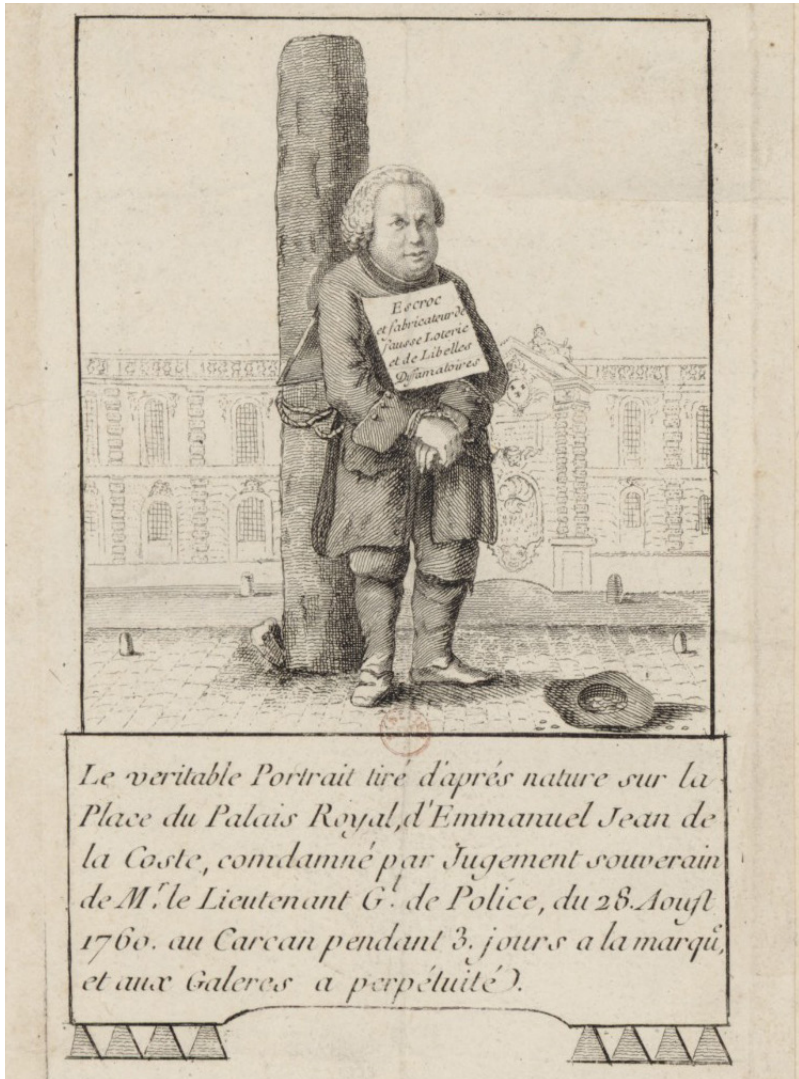 Escroc
et fabricateur de
fausse Loterie
et de Libelles
Diffamatoires
Le veritable Portrait tiré d'aprés nature sur la
Place du Palais Royal, d'Emmanuel Jean de
la Coste, comdamné par Jugement souverain
de Mr. le Lieutenant Gl. de Police, du 28. Aoust
1760. au Carcan pendant 3. jours a la marque,
et aux Galeres a perpétuité).